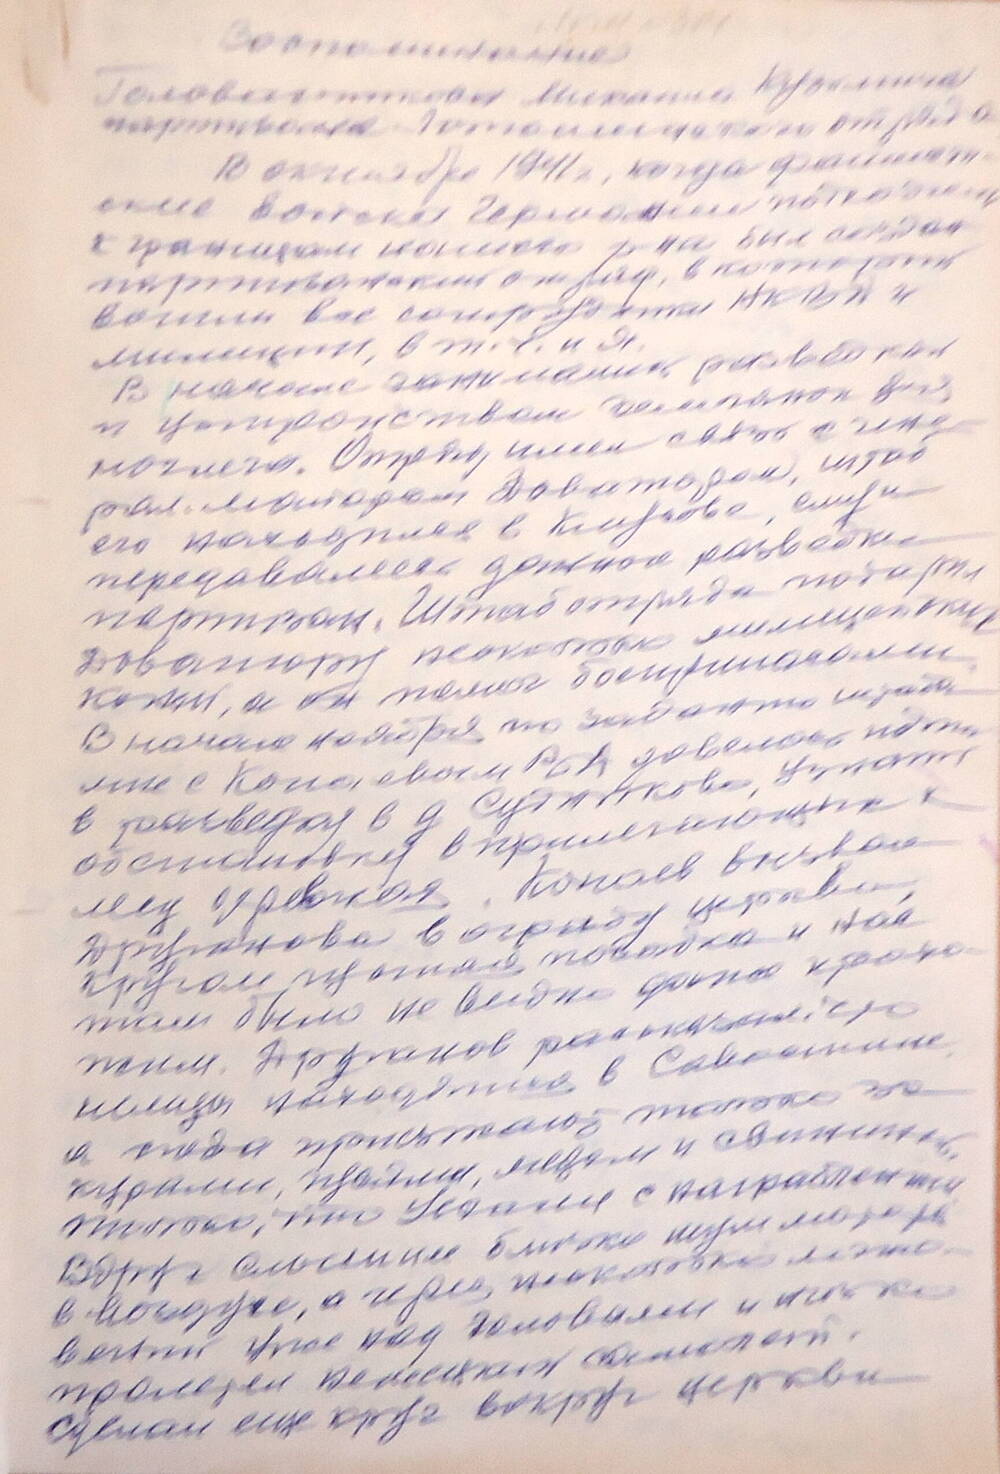 Воспоминание
Михаила Кузьмича
партизана отряда
В октябре 1941 г., когда фашист-
ские войска Германии подходили
к границам нашего р-на был создан
партизанский отряд, в который
вошли все сотрудники НКВД и
милиции, в т.ч. и я.
В начале занимались разведкой
и устройством землянок для
ночлега. Отряд имел связь с гене-
рал-майором Доватором, штаб
его находился в, ему и
передавались данные разведки
партизан. Штаб отряда подарил
Доватору несколько милицейских
коней, а он помог боеприпасами.
В начале ноября по заданию штаба
мне с Конаевым довелось идти
в разведку в д., узнать
обстановку в прилегающих к
ней деревнях. Конаев вызвал
Дружинова в ограду церкви,
кругом густая посадка и нас
там было не видно даже прохо-
жим. Дружинов рассказал: что
немцы находятся в
а сюда приезжают только за
курами, яйцами, медом и свининой,
только, что уехали с награбленным
Вдруг слышим близко шум мотора
в воздухе, а через несколько мгно-
вений уже над головами и низко
пролетел немецкий самолет.
Сделал еще круг вокруг церкви